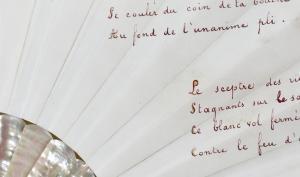 Se couler du coin de ta bouche
Au fond de l'unanime pli.
Le sceptre des
Stagnants sur le
Ce blanc vol
Contre le feu